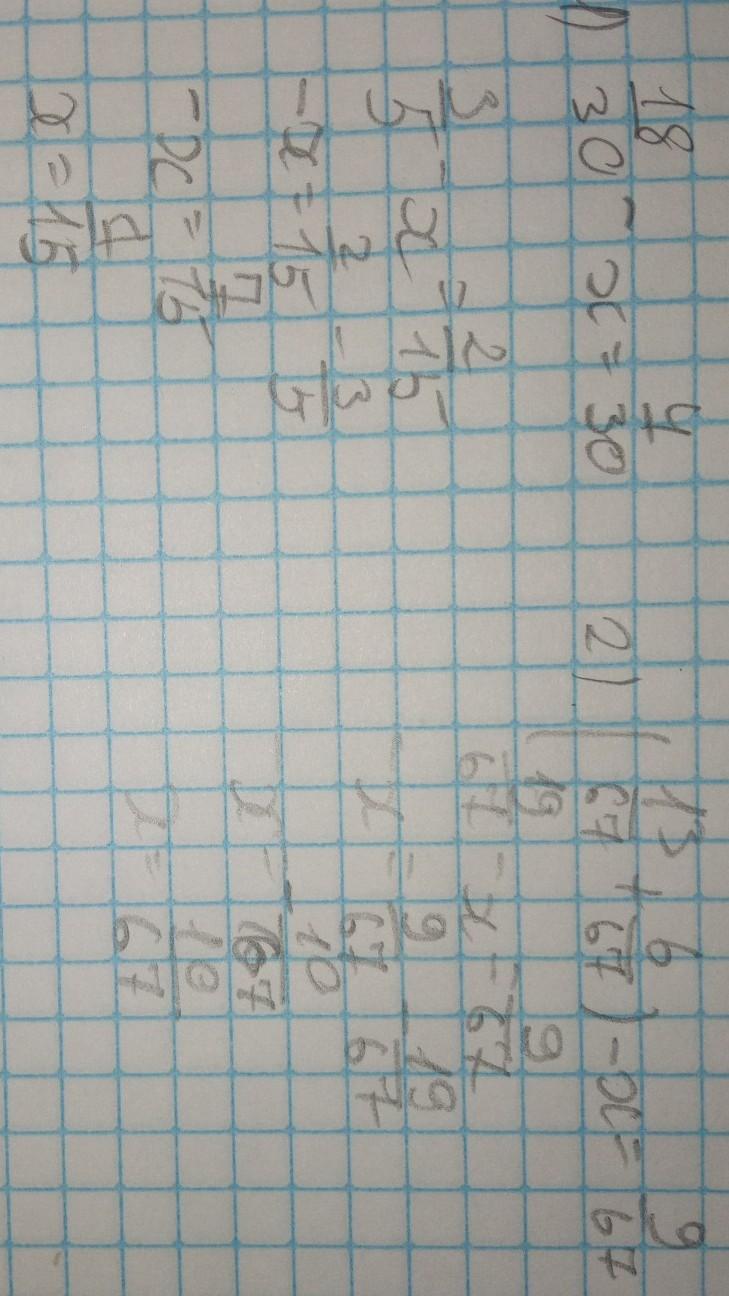 1) 18/30 - x = 4/30
3/5 - x = 2/15
-x = 2/15 - 3/5
-x = 7/15
x = 7/15
2) (13/67 + 6/67) - x = 9/67
19/67 - x = 9/67
-x = 9/67 - 19/67
x = - 10/67
x = 10/67